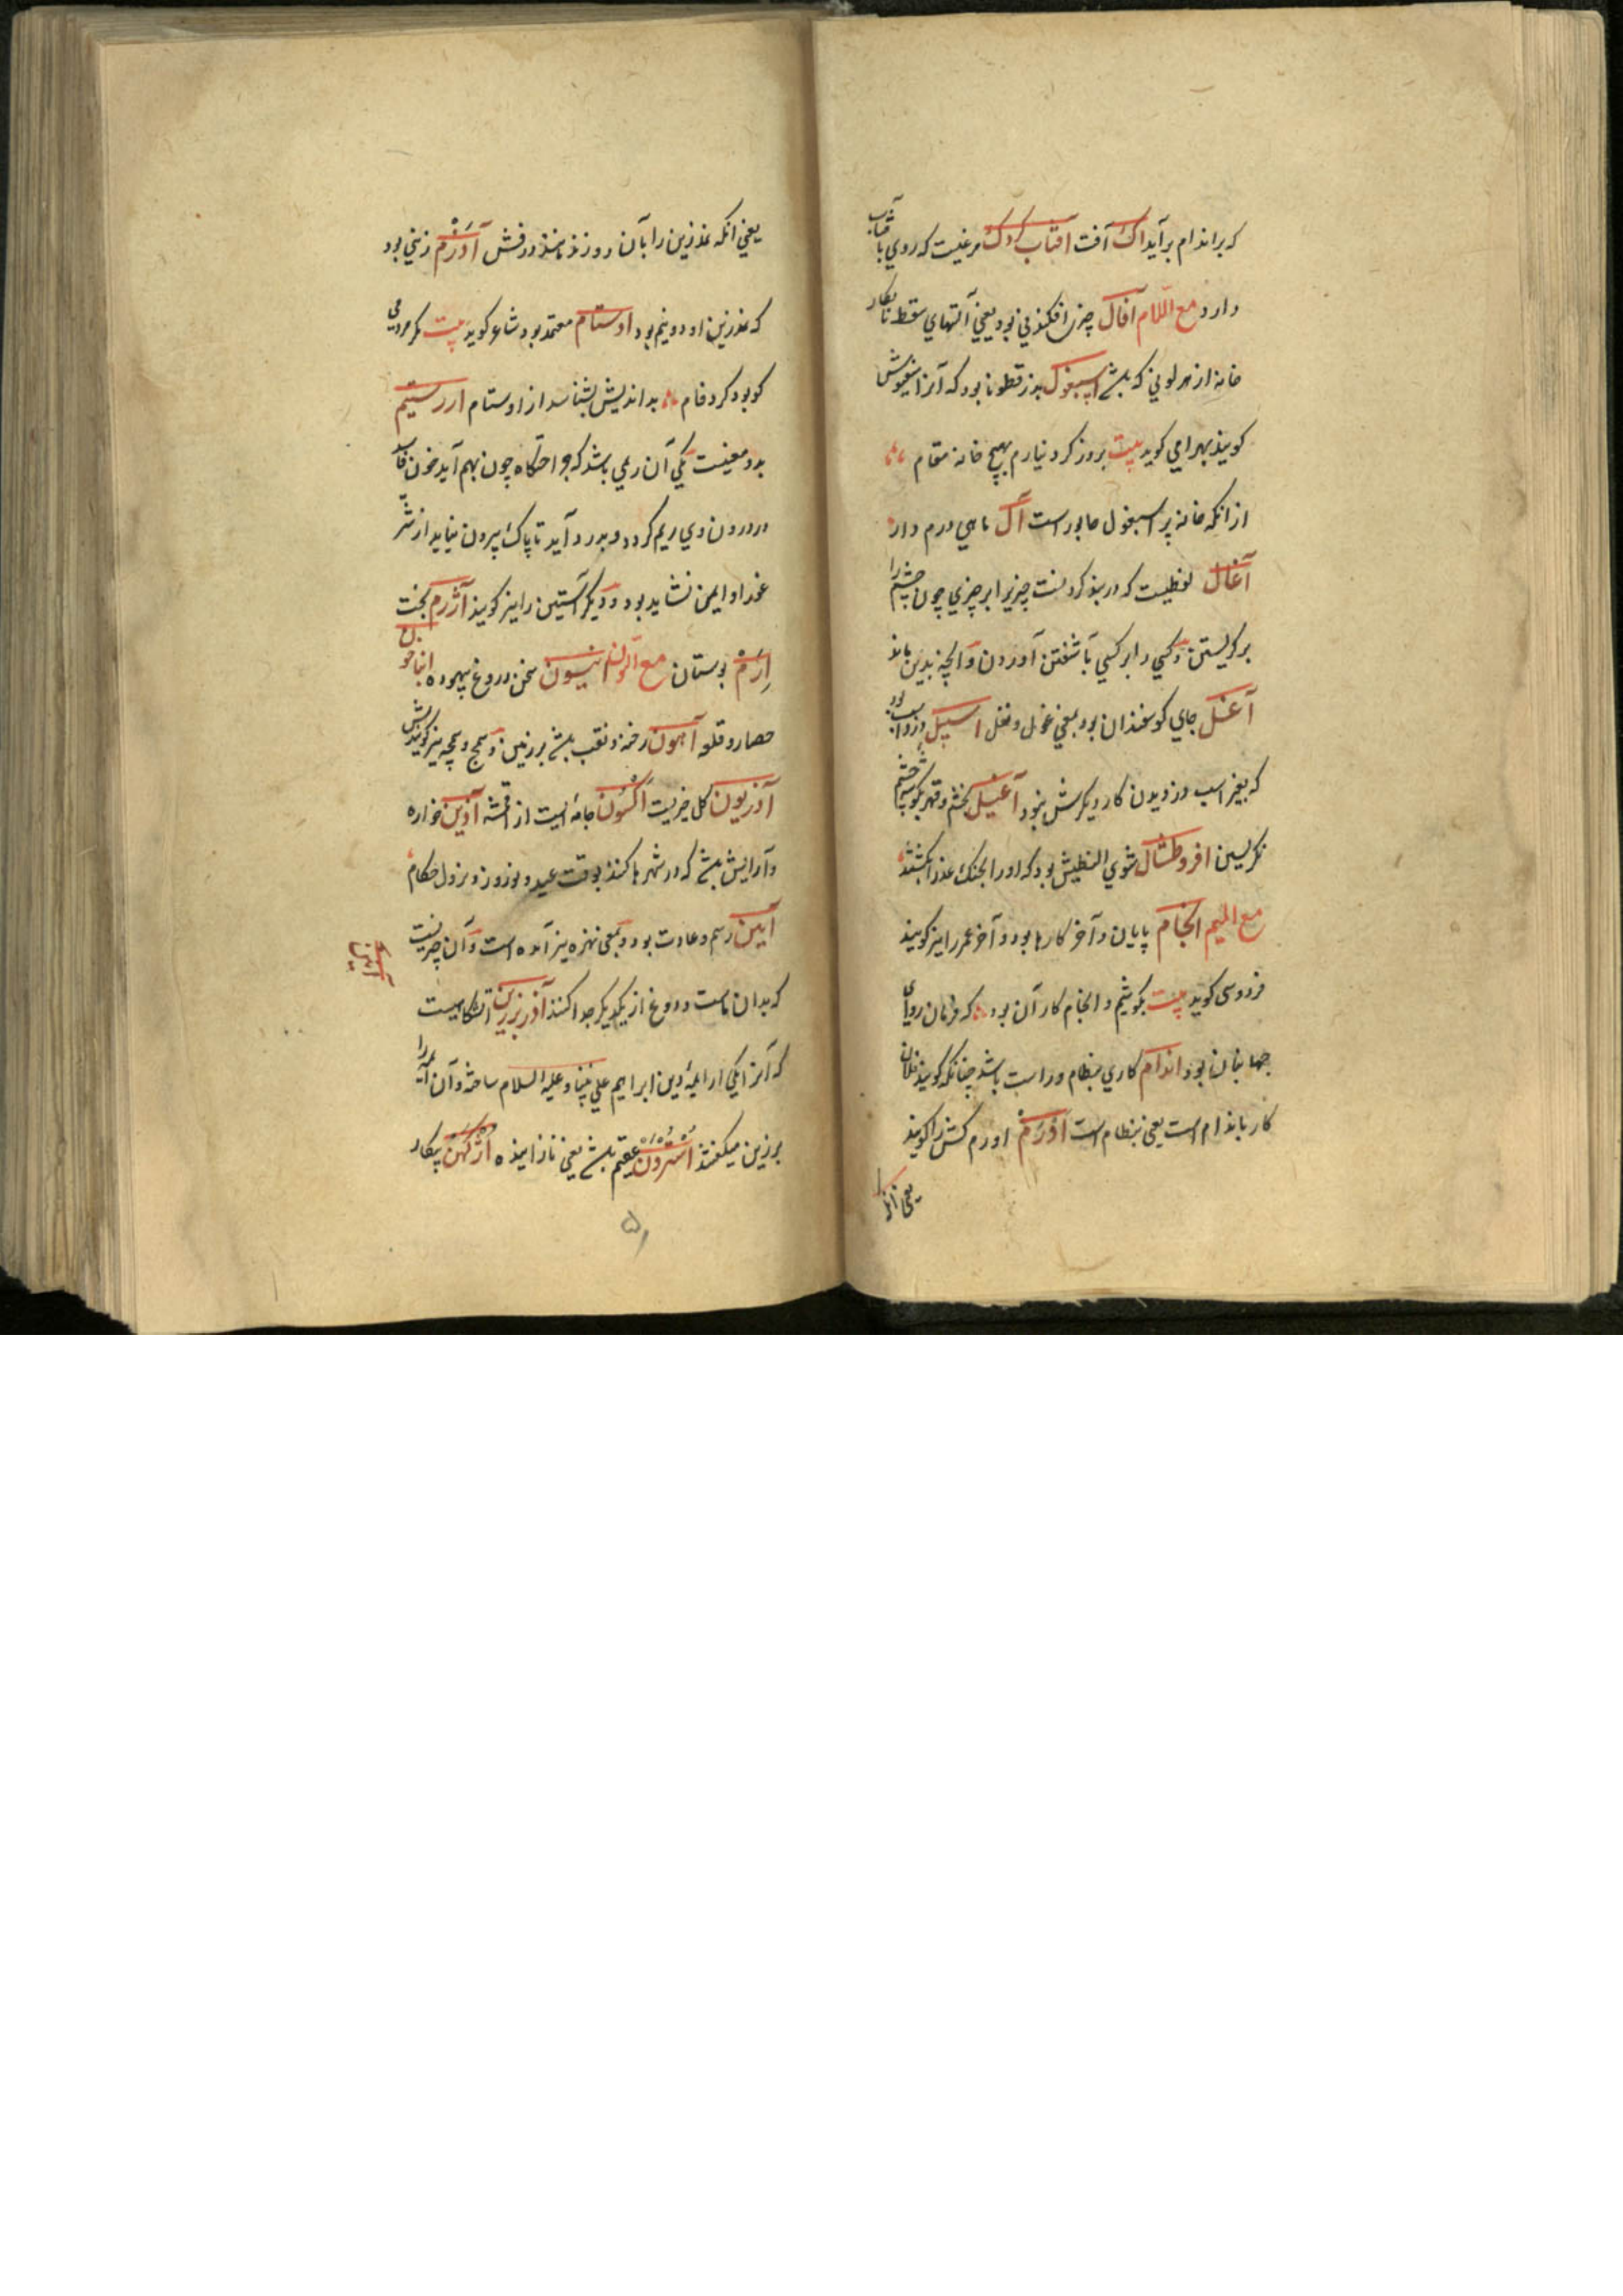 که براندام برآید اک آفت آفتاب کردک مرغیست که روی بآفتاب
دارد مع اللام آفال چیزی افکندنی بود یعنی آلتهای سقط نابکار
خانه از هر لونی که باشد اسبغول بذر قطونا بود که آنرا اسفیوش
کویند بهرامی کوید بیت بروز کرد نیارم بهیچ خانه مقام
از انکه خانه پر اسبغول جانور است آل ماهی درم دار
آغال لفظیست که در بند کردنست چیزی را بر چیزی چون چشم را
برکریستن و کسی را بر کسی بآشفتن آوردن و آنچه بدین ماند
آغل جای کوسفندان بود بمعنی غول و نغل اسپیل دزد اسب بود
که بغیر اسب دزدیدن کار دیکرش نبود آغیل بخشم و قهر بکوشه چشم
نکریستن افروطشال شوی النطیش بود که او را بجنک عذرا بکشتند
مع المیم انجام پایان و آخر کارها بود و آخر عمر را نیز کویند
فردوسی کوید بیت بکوشیم و انجام کار آن بود که فرمان و رای
جهانبان بود اندام کاری بنظام و راست باشد چنانکه کویند فلان
کار باندام است یعنی بنظام است آدرم اورم کش را کویند
یعنی آنکه
یعنی انکه نمدزین را بآن دوزند مانند درفش آدرم زینی بود
که نمدزین او دو نیم بود اوستام معتمد بود شاعر کوید بیت مکر مردمی
کو بود کرد فام بد اندیش بشناسد از اوستام ارستیم
بدو معنیست یکی آن ریمی باشد که جراحتکاه چون بهم آید خون فاسد
در درون وی ریم کردد و بدرد آید تا پاک بیرون نیاید از شر
غدر او ایمن نشاید بود و دیکر آستین را نیز کویند آزرم بخت
اِرَم بوستان مع النون انیسون سخن دروغ بیهوده انباخون
حصار و قلعه آهون رخنه و نقب باشد بر زمین و سمج و سمچه نیز کویندش
آذریون کل خیریست اکسون جامه ایست از اقمشه آذین خوازه
و آرایش باشد که در شهرها کنند بوقت عید و نوروز و نزول حکام
آیین رسم و عادت بود و بمعنی نهره نیز آمده است و آن چیزیست
که بدان ماست و دوغ از یکدیکر جدا کنند آذر برزین آتشکاهیست
که آنرا یکی از ایمه دین ابراهیم علی نبینا و علیه السلام ساخته و آن ایمه را
برزین میکفتند استرون عقیم باشد یعنی نازاینده اژکهن بیکار